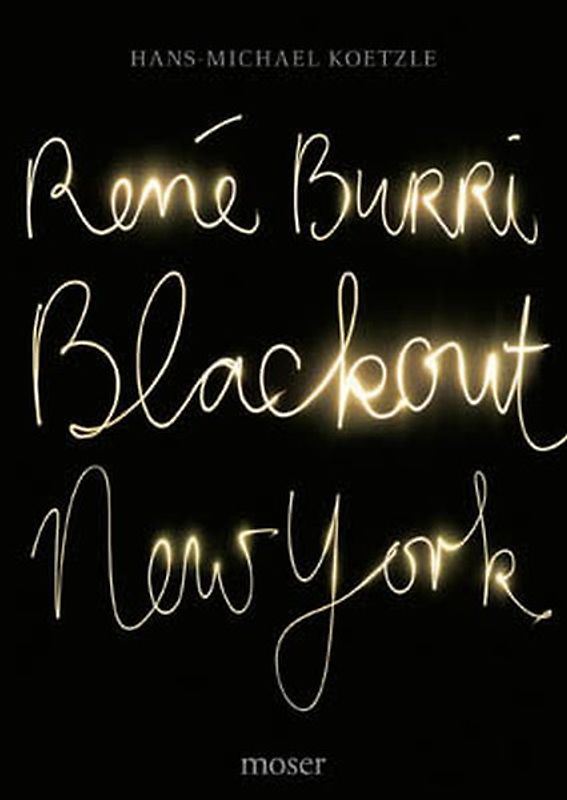 HANS-MICHAEL KOETZLE
René Burri
Blackout
New York
moser